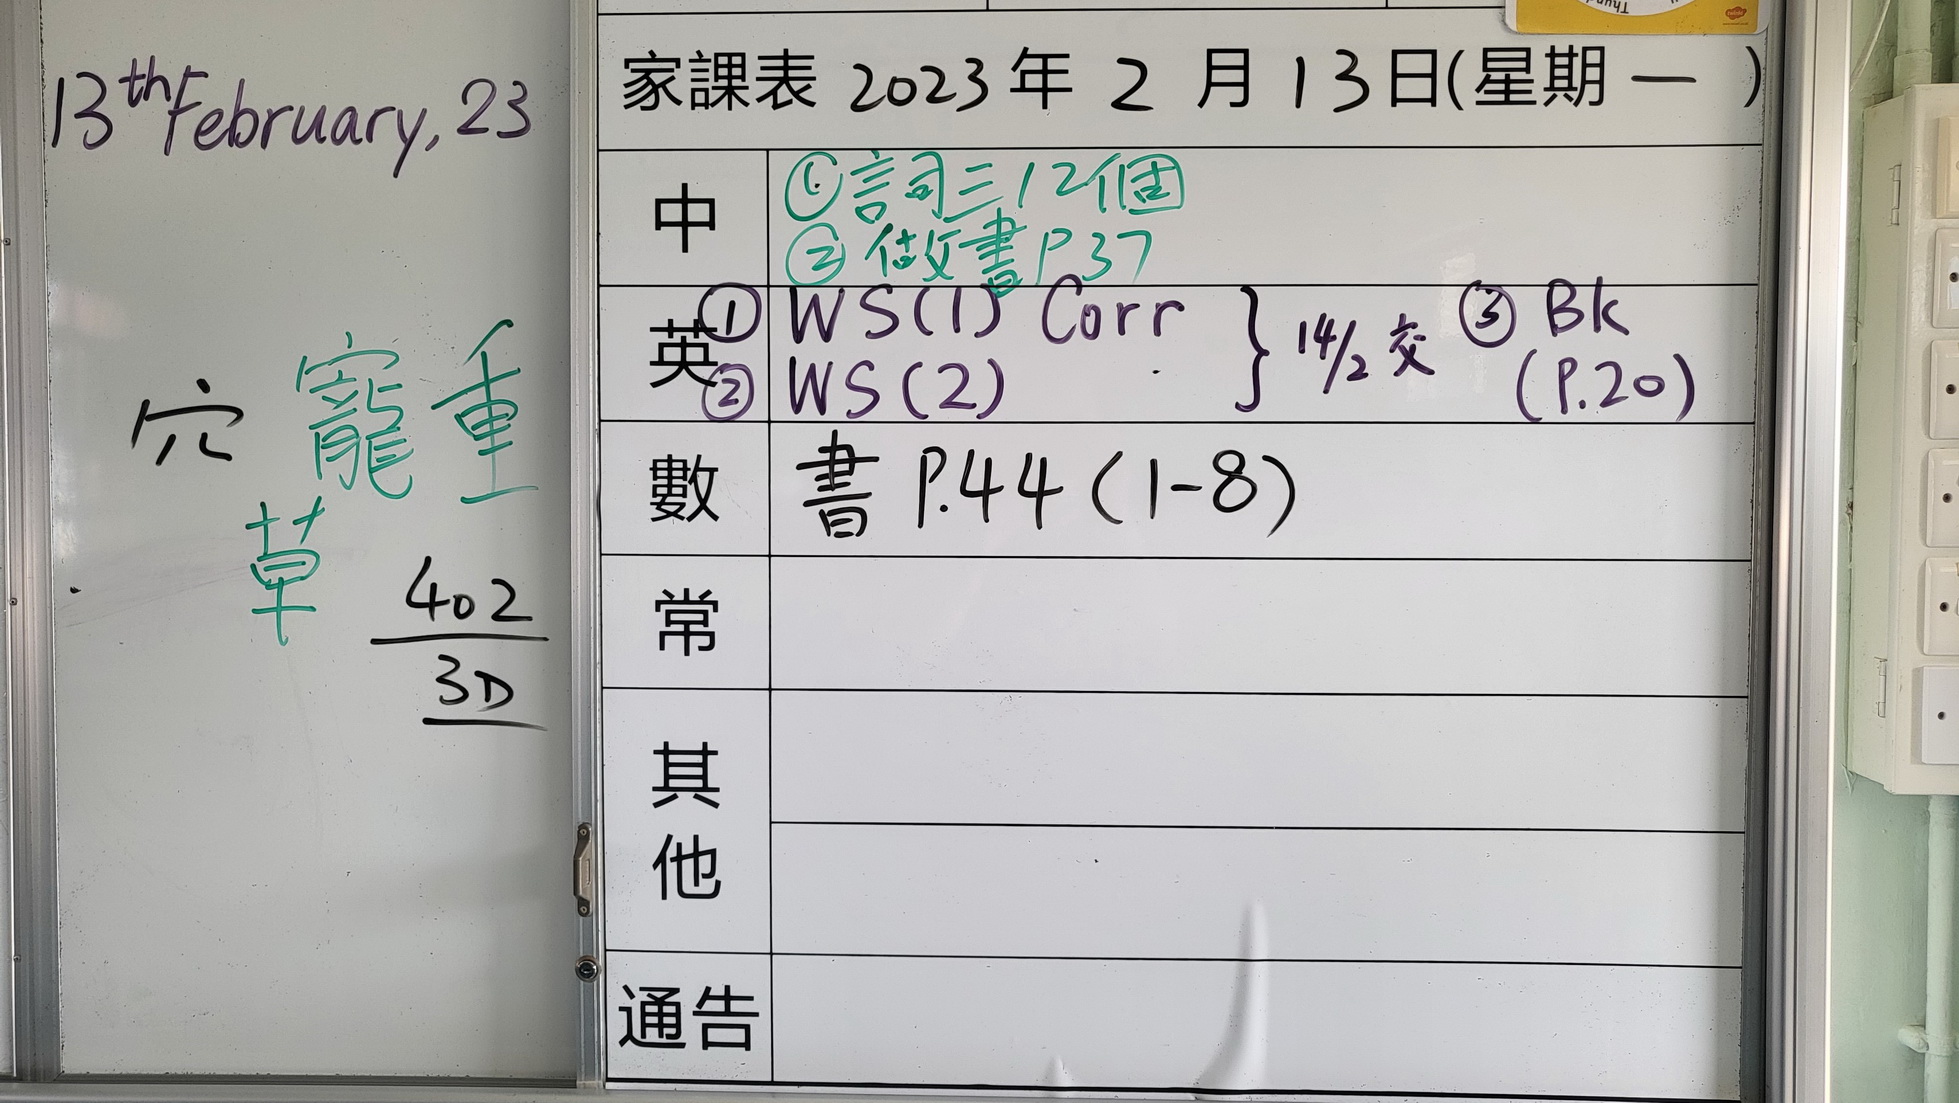 13th February, 23
穴 寵 重
草
402
3D
家課表 2023年 2 月 13日(星期 一 )
中
① 詞三12個
② 做書P37
英
① WS(1) Corr
② WS(2)
} 14/2 交
③ Bk
(P.20)
數
書 P.44 (1-8)
常
其他
通告